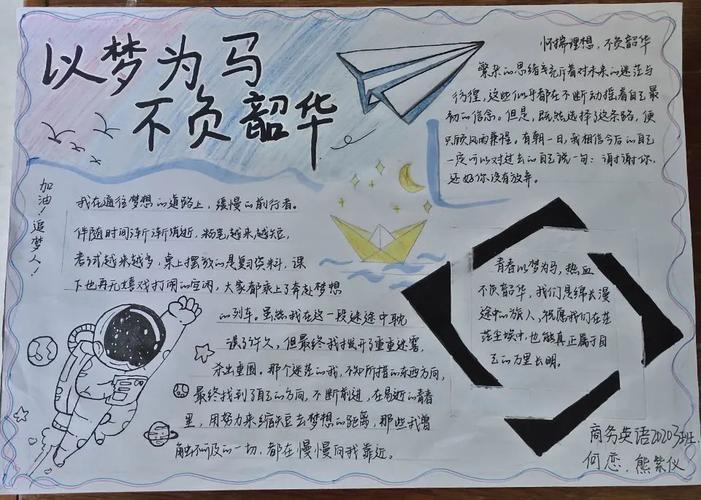 以梦为马
不负韶华
加油！追梦人！
怀揣理想，不负韶华
繁杂的思绪充斥着对未来的迷茫与
彷徨，这些似乎都在不断动摇着自己最
初的信念。但是，既然选择了这条路，便
只顾风雨兼程。有朝一日，我相信今后的自己
一定可以对过去的自己说一句：谢谢你，
还好你没有放弃。
我在通往梦想的道路上，缓慢的前行者。
伴随时间渐渐消逝，粉笔越来越短，
考试越来越多，桌上摆放的是复习资料，课
下也再无嬉戏打闹的空闲，大家都乘上了奔赴梦想
的列车。虽然我在这一段迷途中耽
误了许久，但最终我拨开了重重迷雾，
杀出重围。那个迷茫的我，不知所措的东西方向，
最终找到了自己的方向，不断前进，在易逝的青春
里，用努力来缩短去梦想的距离，那些我曾
触不可及的一切，都在慢慢向我靠近。
青春以梦为马，热血
不负韶华，我们是绵长漫
途中的旅人，祝愿我们在茫
茫尘埃中，也能真正属于自
己的万里长明。
商务英语20203班
何恋、熊紫仪